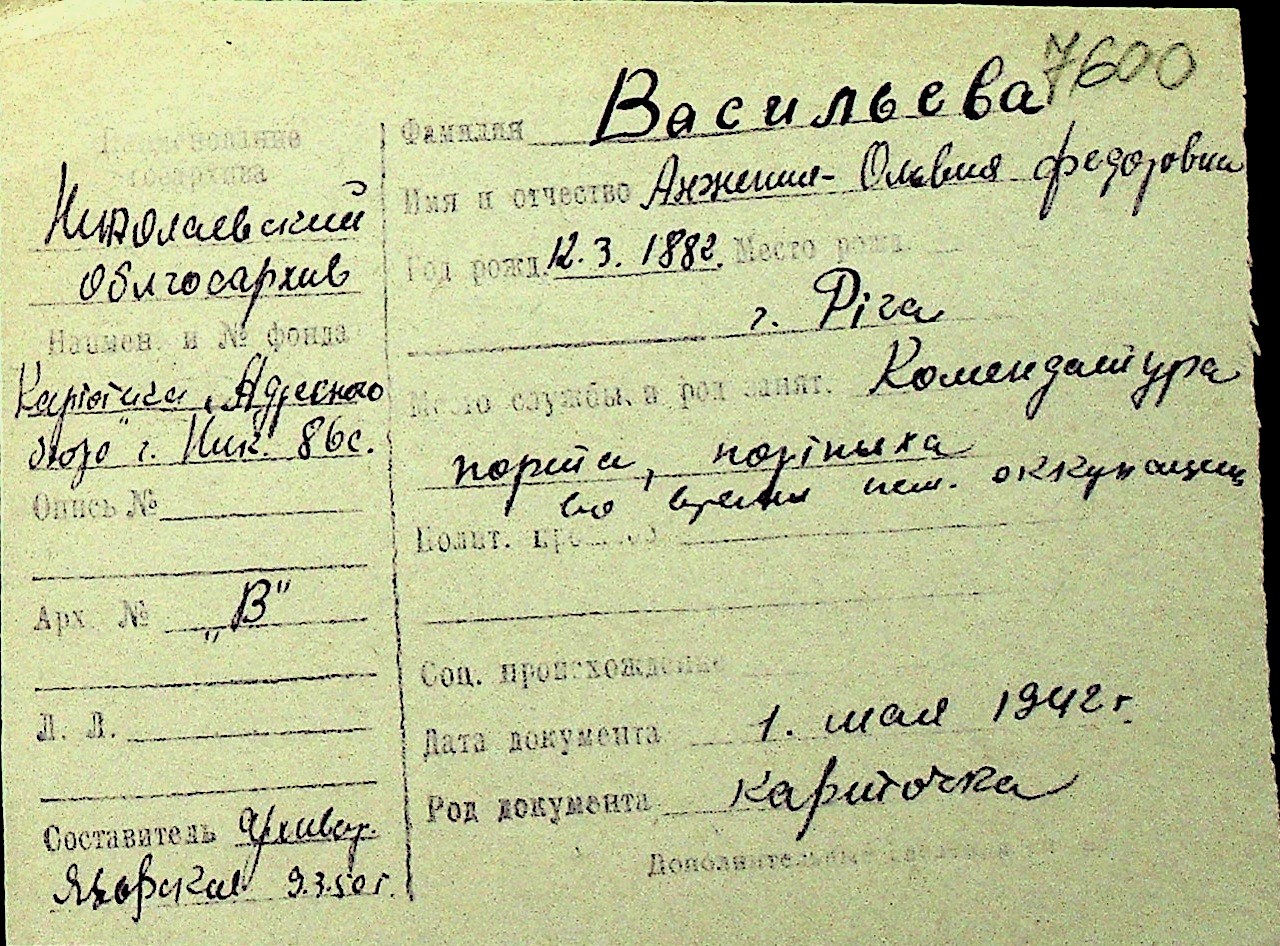 7600
Фамилия Васильева
Имя и отчество Анжелия-Оливия Федоровна
Год рожд. 12.3.1882. Место рожд.
г. Ріга
Место службы и род занят. Комендатура
порта, портниха
во время нем. оккупации
Полит.
Соц. происхождение
Дата документа 1. мая 1942 г.
Род документа карточка
Дополнительные сведения
Наименование
госархива
Николаевский
Облгосархив
Наимен. и № фонда
Картотека „Адресного
бюро" г. Ник. 86с.
Опись №
Арх. № „В"
Л. Л.
Составитель Архивар.
9.3.50 г.